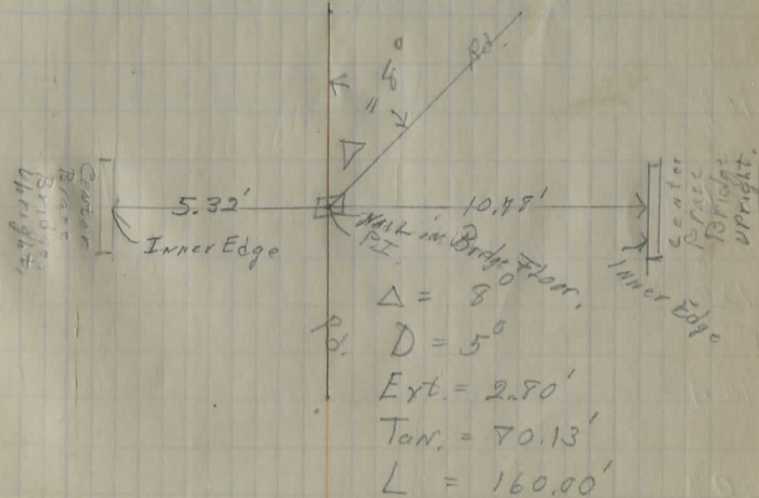 Δ = 8°
Rd.
5.32'
Center
Brace
Bridge
Upright.
Inner Edge
Nail in Bridge Floor.
P.I.
Center
Brace
Bridge
Upright.
Inner Edge
Rd.
Δ = 8°
D = 5°
Ext. = 2.80'
Tan. = 80.13'
L = 160.00'